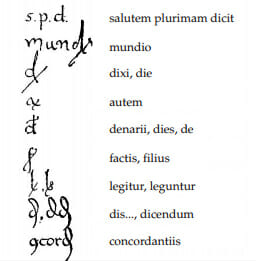 s.p.d. salutem plurimam dicit
mund mundio
d dixi, die
autem
đ denarii, dies, de
f factis, filius
l. ls legitur, leguntur
dis..., dicendum
9cord concordantiis